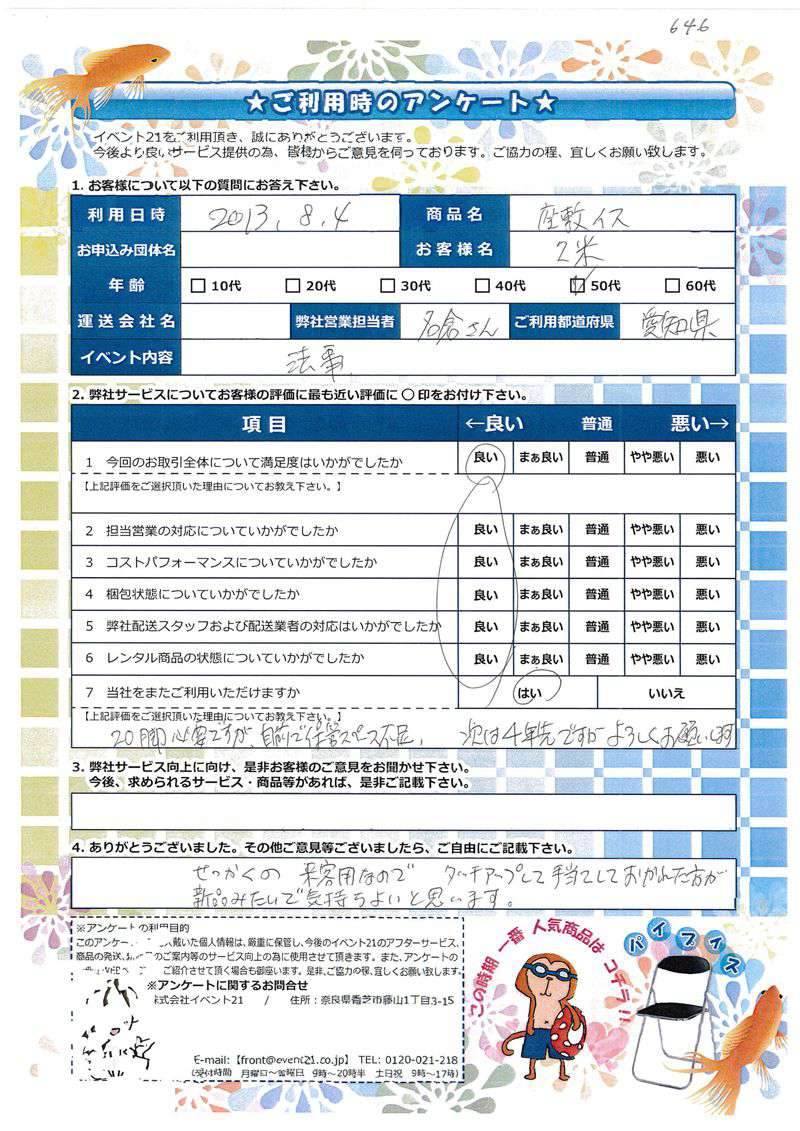 646
★ご利用時のアンケート★
イベント21をご利用頂き、誠にありがとうございます。
今後より良いサービス提供の為、皆様からご意見を伺っております。ご協力の程、宜しくお願い致します。
1. お客様について以下の質問にお答え下さい。
利用日時 2013.8.4 商品名 座敷イス
お申込み団体名 お客様名 2米
年齢 10代 20代 30代 40代 50代 60代
運送会社名 弊社営業担当者 名倉さん ご利用都道府県 愛知県
イベント内容 法事
2. 弊社サービスについてお客様の評価に最も近い評価に ○ 印をお付け下さい。
項目 ←良い 普通 悪い→
1 今回のお取引全体について満足度はいかがでしたか 良い まぁ良い 普通 やや悪い 悪い
【上記評価をご選択頂いた理由についてお教え下さい。】
2 担当営業の対応についていかがでしたか 良い まぁ良い 普通 やや悪い 悪い
3 コストパフォーマンスについていかがでしたか 良い まぁ良い 普通 やや悪い 悪い
4 梱包状態についていかがでしたか 良い まぁ良い 普通 やや悪い 悪い
5 弊社配送スタッフおよび配送業者の対応はいかがでしたか 良い まぁ良い 普通 やや悪い 悪い
6 レンタル商品の状態についていかがでしたか 良い まぁ良い 普通 やや悪い 悪い
7 当社をまたご利用いただけますか はい いいえ
【上記評価をご選択頂いた理由についてお教え下さい。】
20脚必要ですが、自前で保管スペース不足、 次は4年先ですがよろしくお願いします
3. 弊社サービス向上に向け、是非お客様のご意見をお聞かせ下さい。
今後、求められるサービス・商品等があれば、是非ご記載下さい。
4. ありがとうございました。その他ご意見等ございましたら、ご自由にご記載下さい。
せっかくの 来客用なので タッチアップして手当てしておかれた方が
新品みたいで気持ちよいと思います。
※アンケートの利用目的
このアンケー 戴いた個人情報は、厳重に保管し、今後のイベント21のアフターサービス、
商品の発送、 のご案内等のサービス向上の為に使用させて頂きます。また、アンケートの
ご紹介させて頂く場合も御座います。是非、ご協力の程、宜しくお願い致します。
※アンケートに関するお問合せ
株式会社イベント21 / 住所:奈良県香芝市藤山1丁目3-15
E-mail:【front@event21.co.jp】 TEL: 0120-021-218
(受付時間 月曜日~金曜日 9時~20時半 土日祝 9時~17時)
この時期一番人気商品はコチラ!!
パイプイス